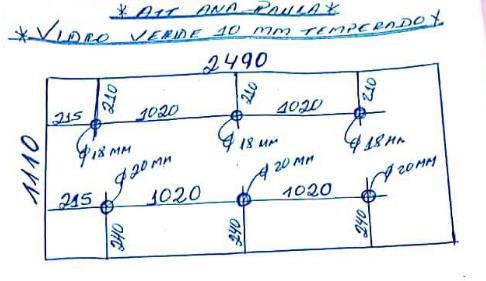 *ATT ANA PAULA*
*VIDRO VERDE 10 MM TEMPERADO*
2490
210 210 210
215 1020 1020
Ø18 MM Ø18 MM Ø18 MM
1110
Ø20 MM Ø20 MM Ø20 MM
215 1020 1020
240 240 240